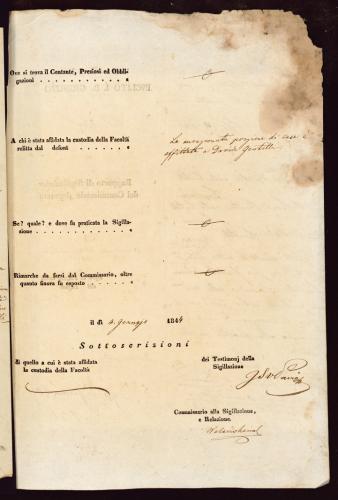 Ove si trova il Contante, Preziosi ed Obbli-
gazioni . . . . . . . .
A chi è stata affidata la custodia della Facoltà
relitta dal defont . . . . . .
La menzionata porzione di casa è
affittata a David
Se? quale? e dove fu praticata la Sigilla-
zione . . . . . . . . .
Rimarche da farsi dal Commissario, oltre
quanto finora fu esposto . . . . .
il dì 4. Gennajo 1844
Sottoscrizioni
di quello a cui è stata affidata
la custodia della Facoltà
dei Testimonj della
Sigillazione
Commissario alla Sigillazione,
e Relazione.